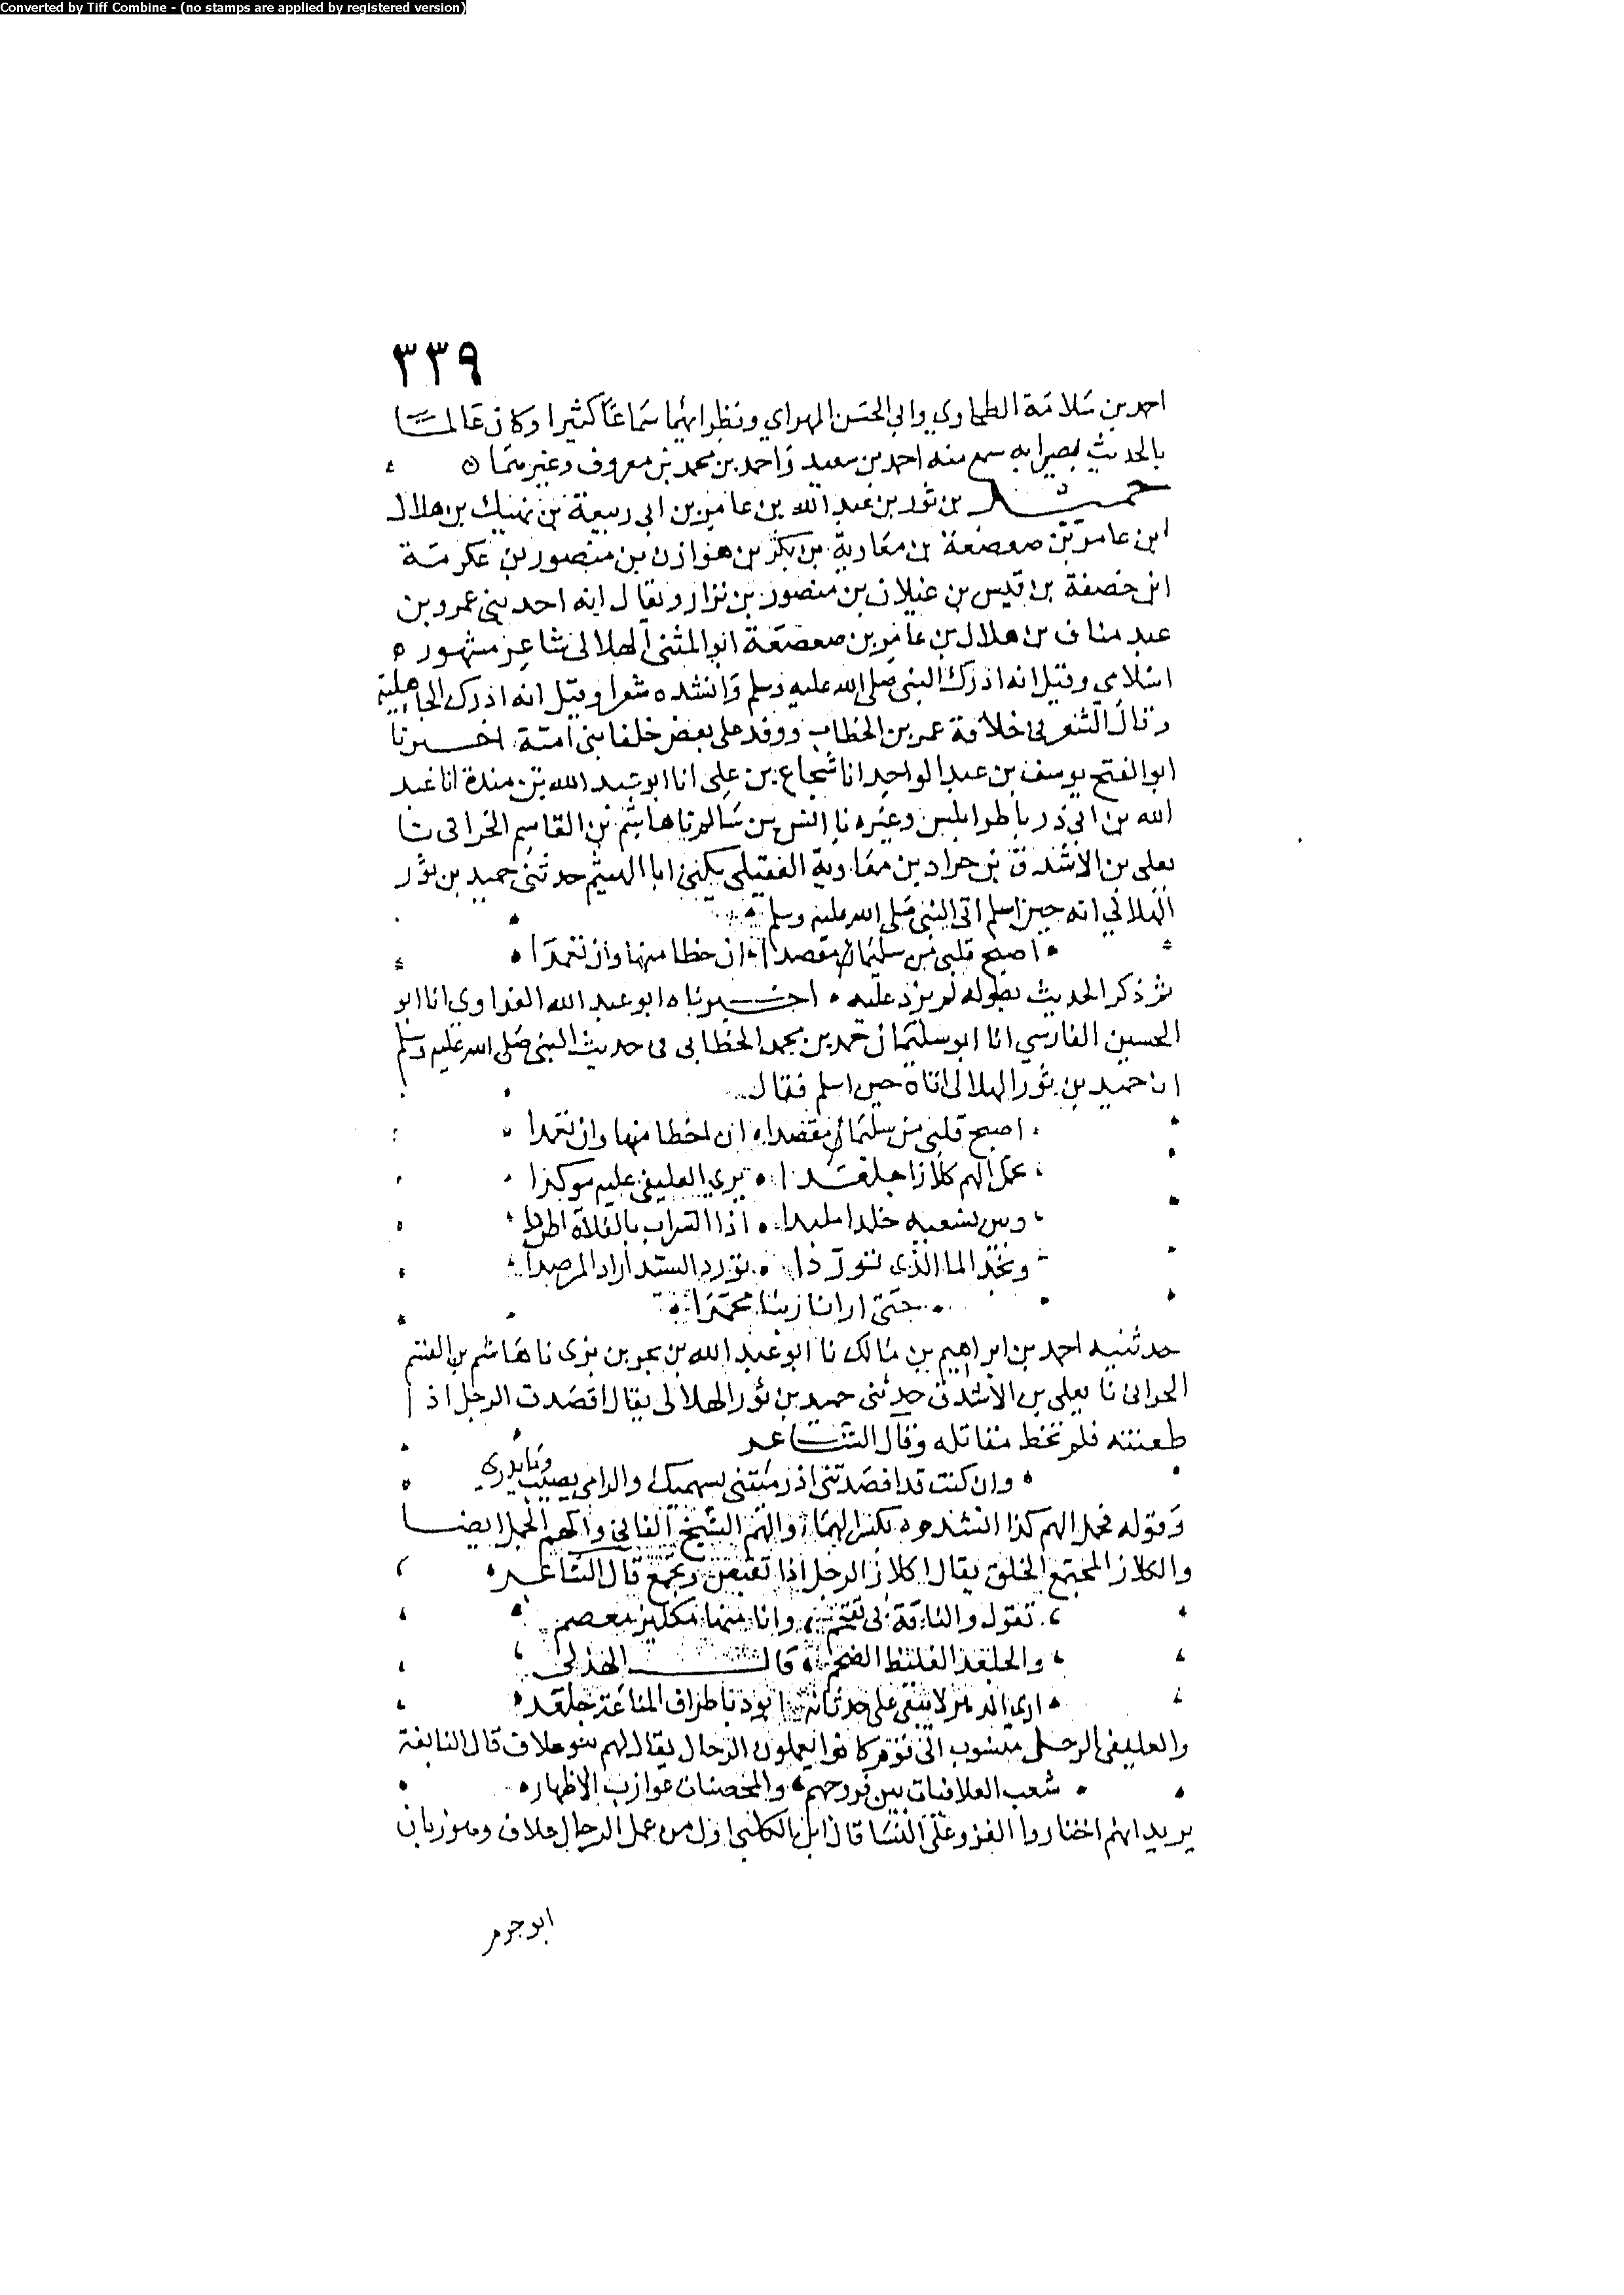 Converted by Tiff Combine - (no stamps are applied by registered version)
٣٣٩
احمد بن سلامة الطحاوي وابي الحسن المهراي ونظرائهما سماعا كثيرا وكان عالما
بالحديث بصيرا به سمع منه احمد بن سعيد واحمد بن محمد بن معروف وغيرهما
حميد بن ثور بن عبد الله بن عامر بن ابي ربيعة بن نهيك بن هلال
ابن عامر بن صعصعة بن معاوية بن بكر بن هوازن بن منصور بن عكرمة
ابن خصفة بن قيس بن عيلان بن منصور بن نزار ويقال انه احد بني عمرو بن
عبد مناف بن هلال بن عامر بن صعصعة ابو المثنى الهلالي شاعر مشهور
اسلامي وقيل انه ادرك النبي صلى الله عليه وسلم وانشده شعرا وقيل انه ادرك الجاهلية
وقال الشعر في خلافة عمر بن الخطاب ووفد على بعض خلفا بني امية اخبرنا
ابو الفتح يوسف بن عبد الواحد انا شجاع بن علي انا ابو عبد الله بن مندة انا عبد
الله بن ابي ذر باطرابلس وغيره نا انس بن سالم نا هاشم بن القاسم الحراني نا
يعلى بن الاشدق بن جراد بن معاوية العقيلي يكنى ابا الهيثم حدثني حميد بن ثور
الهلالي انه حين اسلم اتى النبي صلى الله عليه وسلم
اصبح قلبي من سليمى مقصدا ان خطا منها وان تعمدا
ثم ذكر الحديث بطوله لم يزد عليه اخبرناه ابو عبد الله الفراوي انا ابو
الحسين الفارسي انا ابو سليمان حمد بن محمد الخطابي في حديث النبي صلى الله عليه وسلم
ان حميد بن ثور الهلالي اتاه حين اسلم فقال
اصبح قلبي من سليمى مقصدا ان اخطا منها وان تعمدا
فحمل الهم كلازا جلعدا يرى العليفي عليه موكدا
وبين نسعيه خدبا ملبدا اذا السراب بالفلاة اطردا
ونجد الما الذي توردا تورد السيد اراد المرصدا
حتى ارانا ربنا محمدا
حدثنيه احمد بن ابراهيم بن مالك نا ابو عبد الله بن بحر بن بزى نا هاشم بن القسم
الحراني نا يعلى بن الاشدق حدثني حميد بن ثور الهلالي يقال اقصدت الرجل اذا
طعنته فلم تخط مقاتله وقال الشاعر
وان كنت قد اقصدتني اذ رميتني بسهميك والرامي يصيب وما يدري
وقوله فحمل الهم كذا انشدوه بكسر الها والهم الشيخ الفاني والهم الجمل ايضا
والكلاز المجتمع الخلق يقال اكلاز الرجل اذا تقبض وتجمع قال الشاعر
تقول والناقة بي تقحم وانا منها مكلئز معصم
والجلعد الغليظ الضخم قال الهذلي
ارى الدهر لا يبقى على حدثانه ابود باطراف المناعة جلعد
والعليفي الرحل منسوب الى قوم كانوا يعملون الرحال يقال لهم بنو علاف قال النابغة
شعب العلافيات بين فروجهم والمحصنات عوازب الاظهار
يريد انهم اختاروا الغزو على النسا قال ابن الكلبي اول من عمل الرحال علاف وهو زبان
ابو جرم